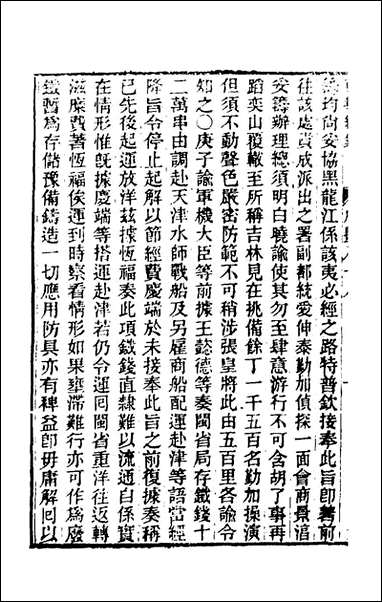 籌均尚安協黑龍江係該夷必經之路特普欽接奉此旨卽著前
往該處責成派出之署副都統愛伸泰勤加偵探一面會商景淳
妥籌辦理總須明白曉諭使其勿至肆意游行不可含胡了事再
蹈奕山覆轍至所稱吉林見在挑備餘丁一千五百名勤加操演
但須不動聲色嚴密防範不可稍涉張皇將此由五百里各諭令
知之〇庚子諭軍機大臣等前據王懿德等奏閩省局存鐵錢十
二萬串由調赴天津水師戰船及另雇商船配運赴津等語當經
降旨令停止起解以節經費慶端於未接奉此旨之前復據奏稱
已先後起運放洋茲據恆福奏此項鐵錢直隸難以流通自係實
在情形惟旣據慶端等搭運赴津若仍令運囘閩省重洋往返轉
滋糜費著恆福俟運到時察看情形如果壅滯難行亦可作爲廢
鐵暫爲存儲豫備鑄造一切應用防具亦有裨益卽毋庸解囘以